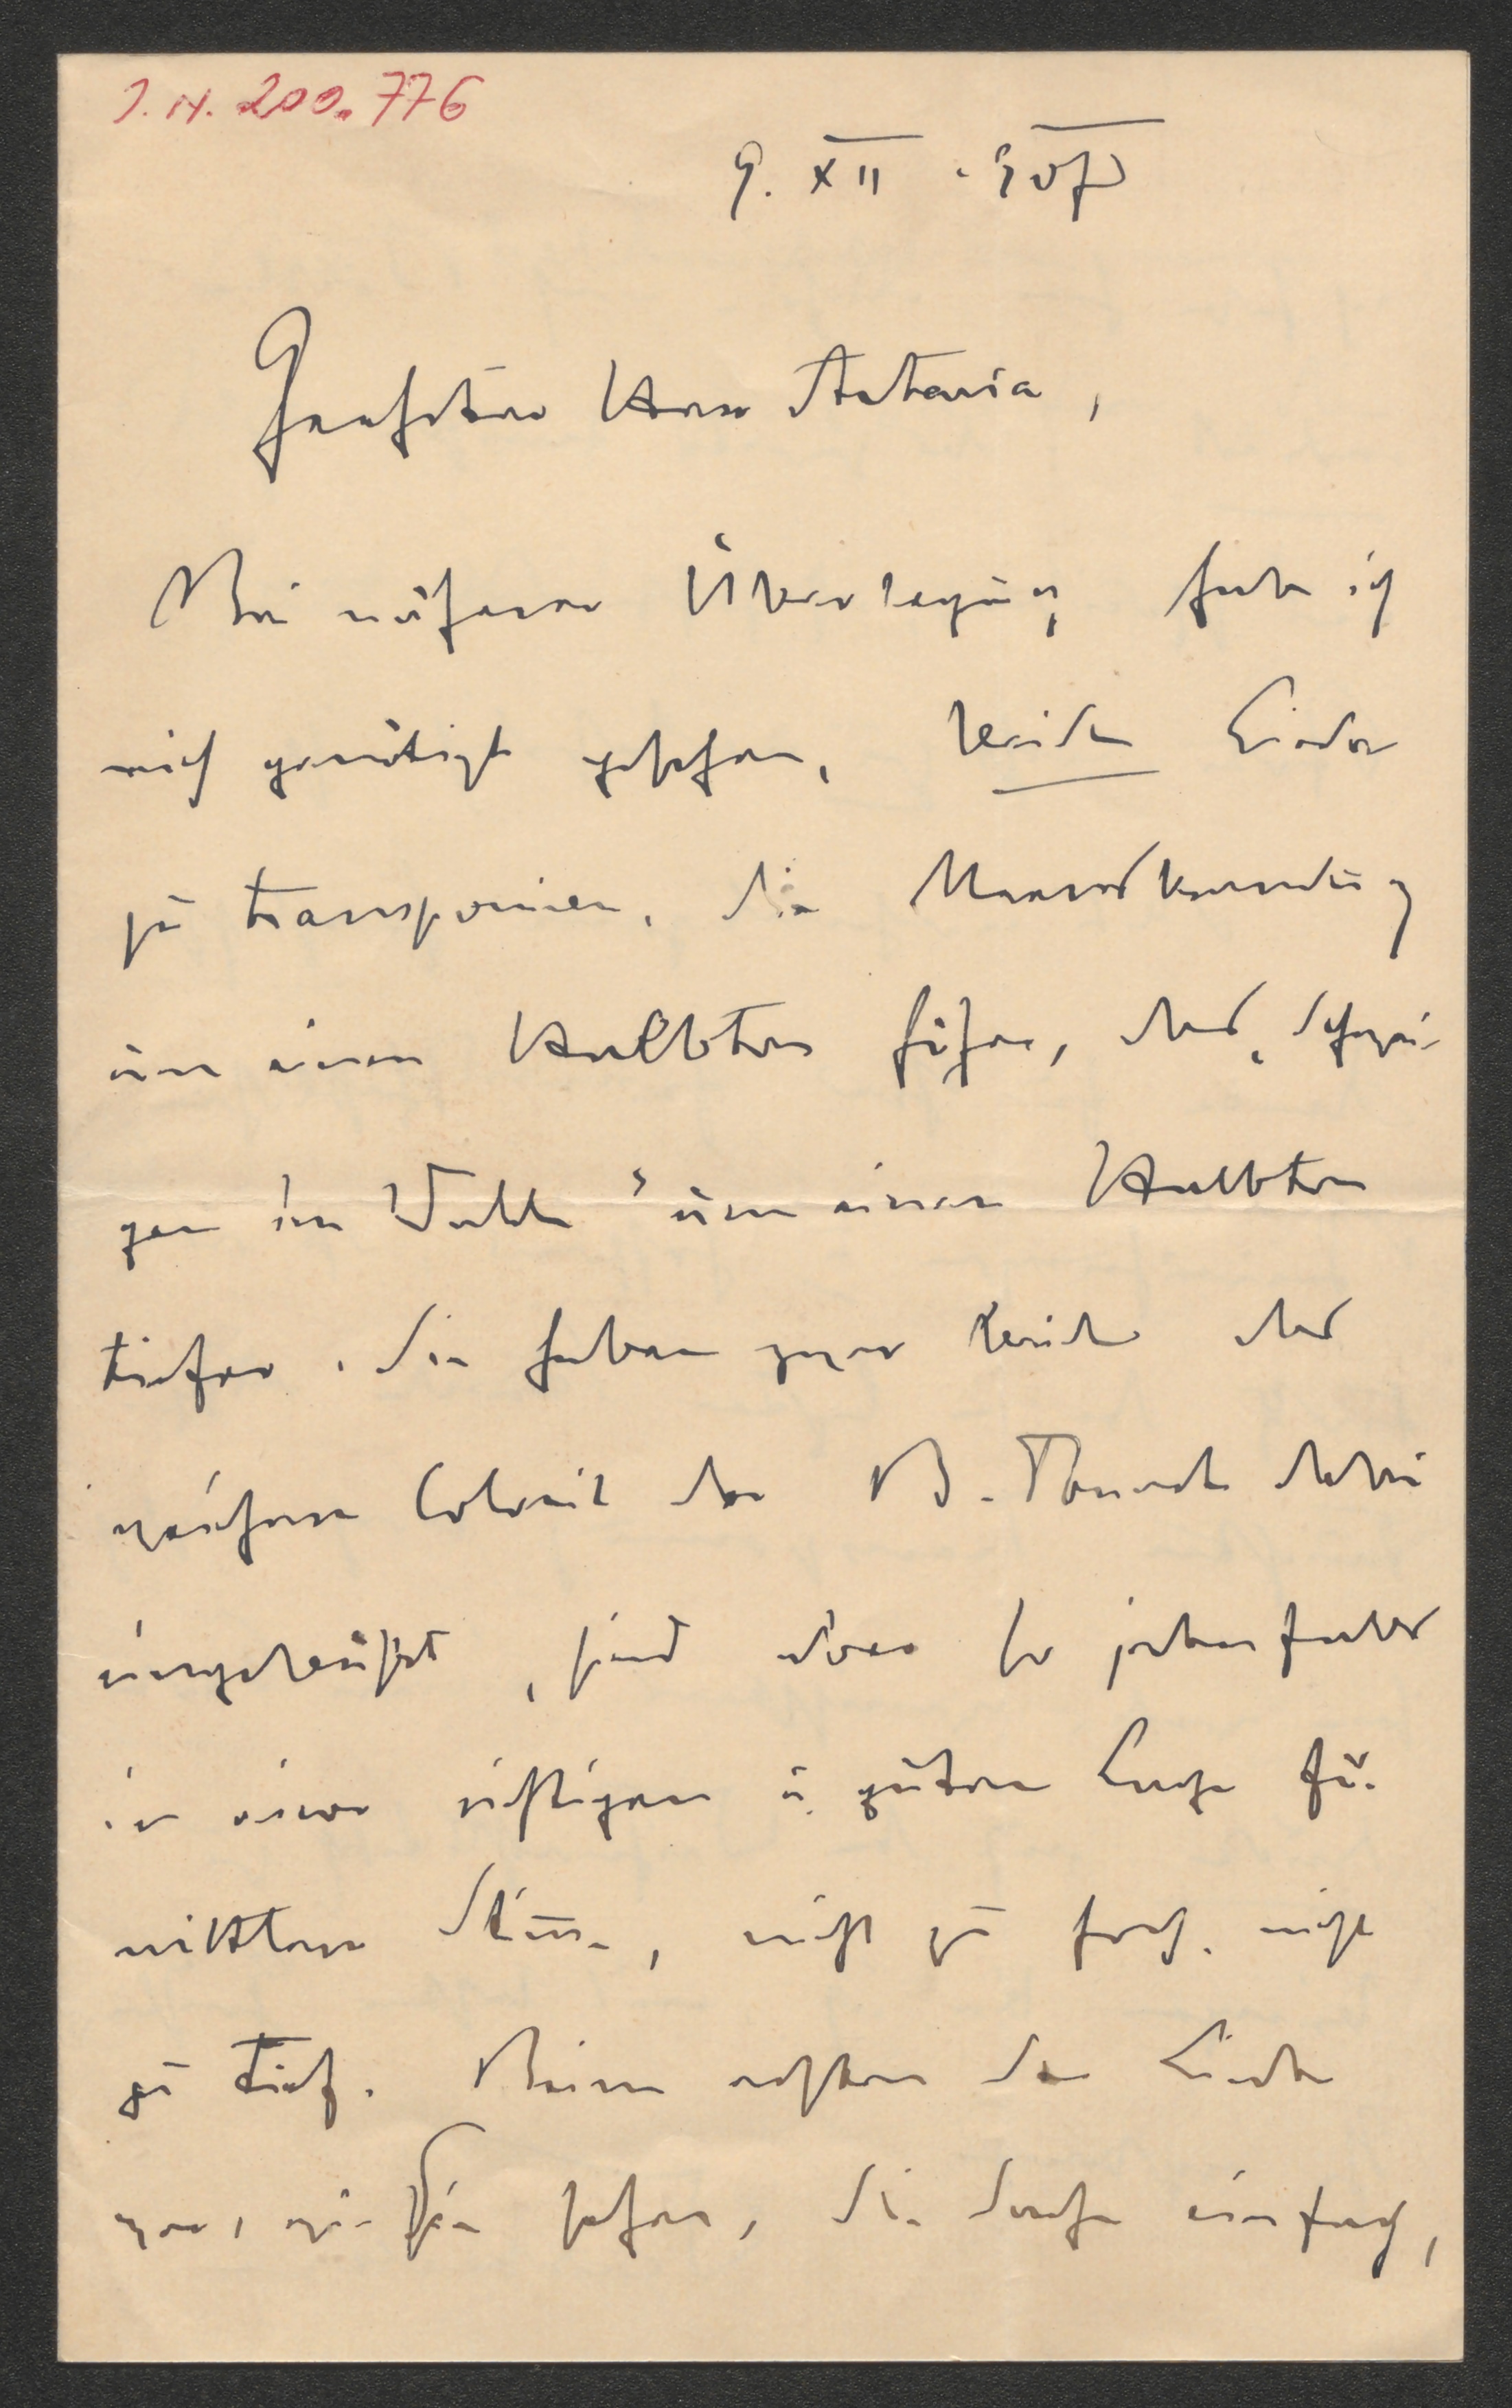 I.N. 200.776
9. XII.
Geehrter Herr
Bei näherer Überlegung habe ich
mich genötigt gesehen, beide Lieder
zu transponieren, die
um einen Halbton höher, das „Schwei-
gen im Walde“ um einen Halbton
tiefer. Sie haben zwar beide das
weichere Colorit der B-Tonart dabei
eingebüßt, sind aber so jedenfalls
in einer richtigen u. guten Lage für
mittlere Stimme, nicht zu hoch, nicht
zu tief. Beim ersten der Lieder
war, wie Sie sehen, die Sache einfach,